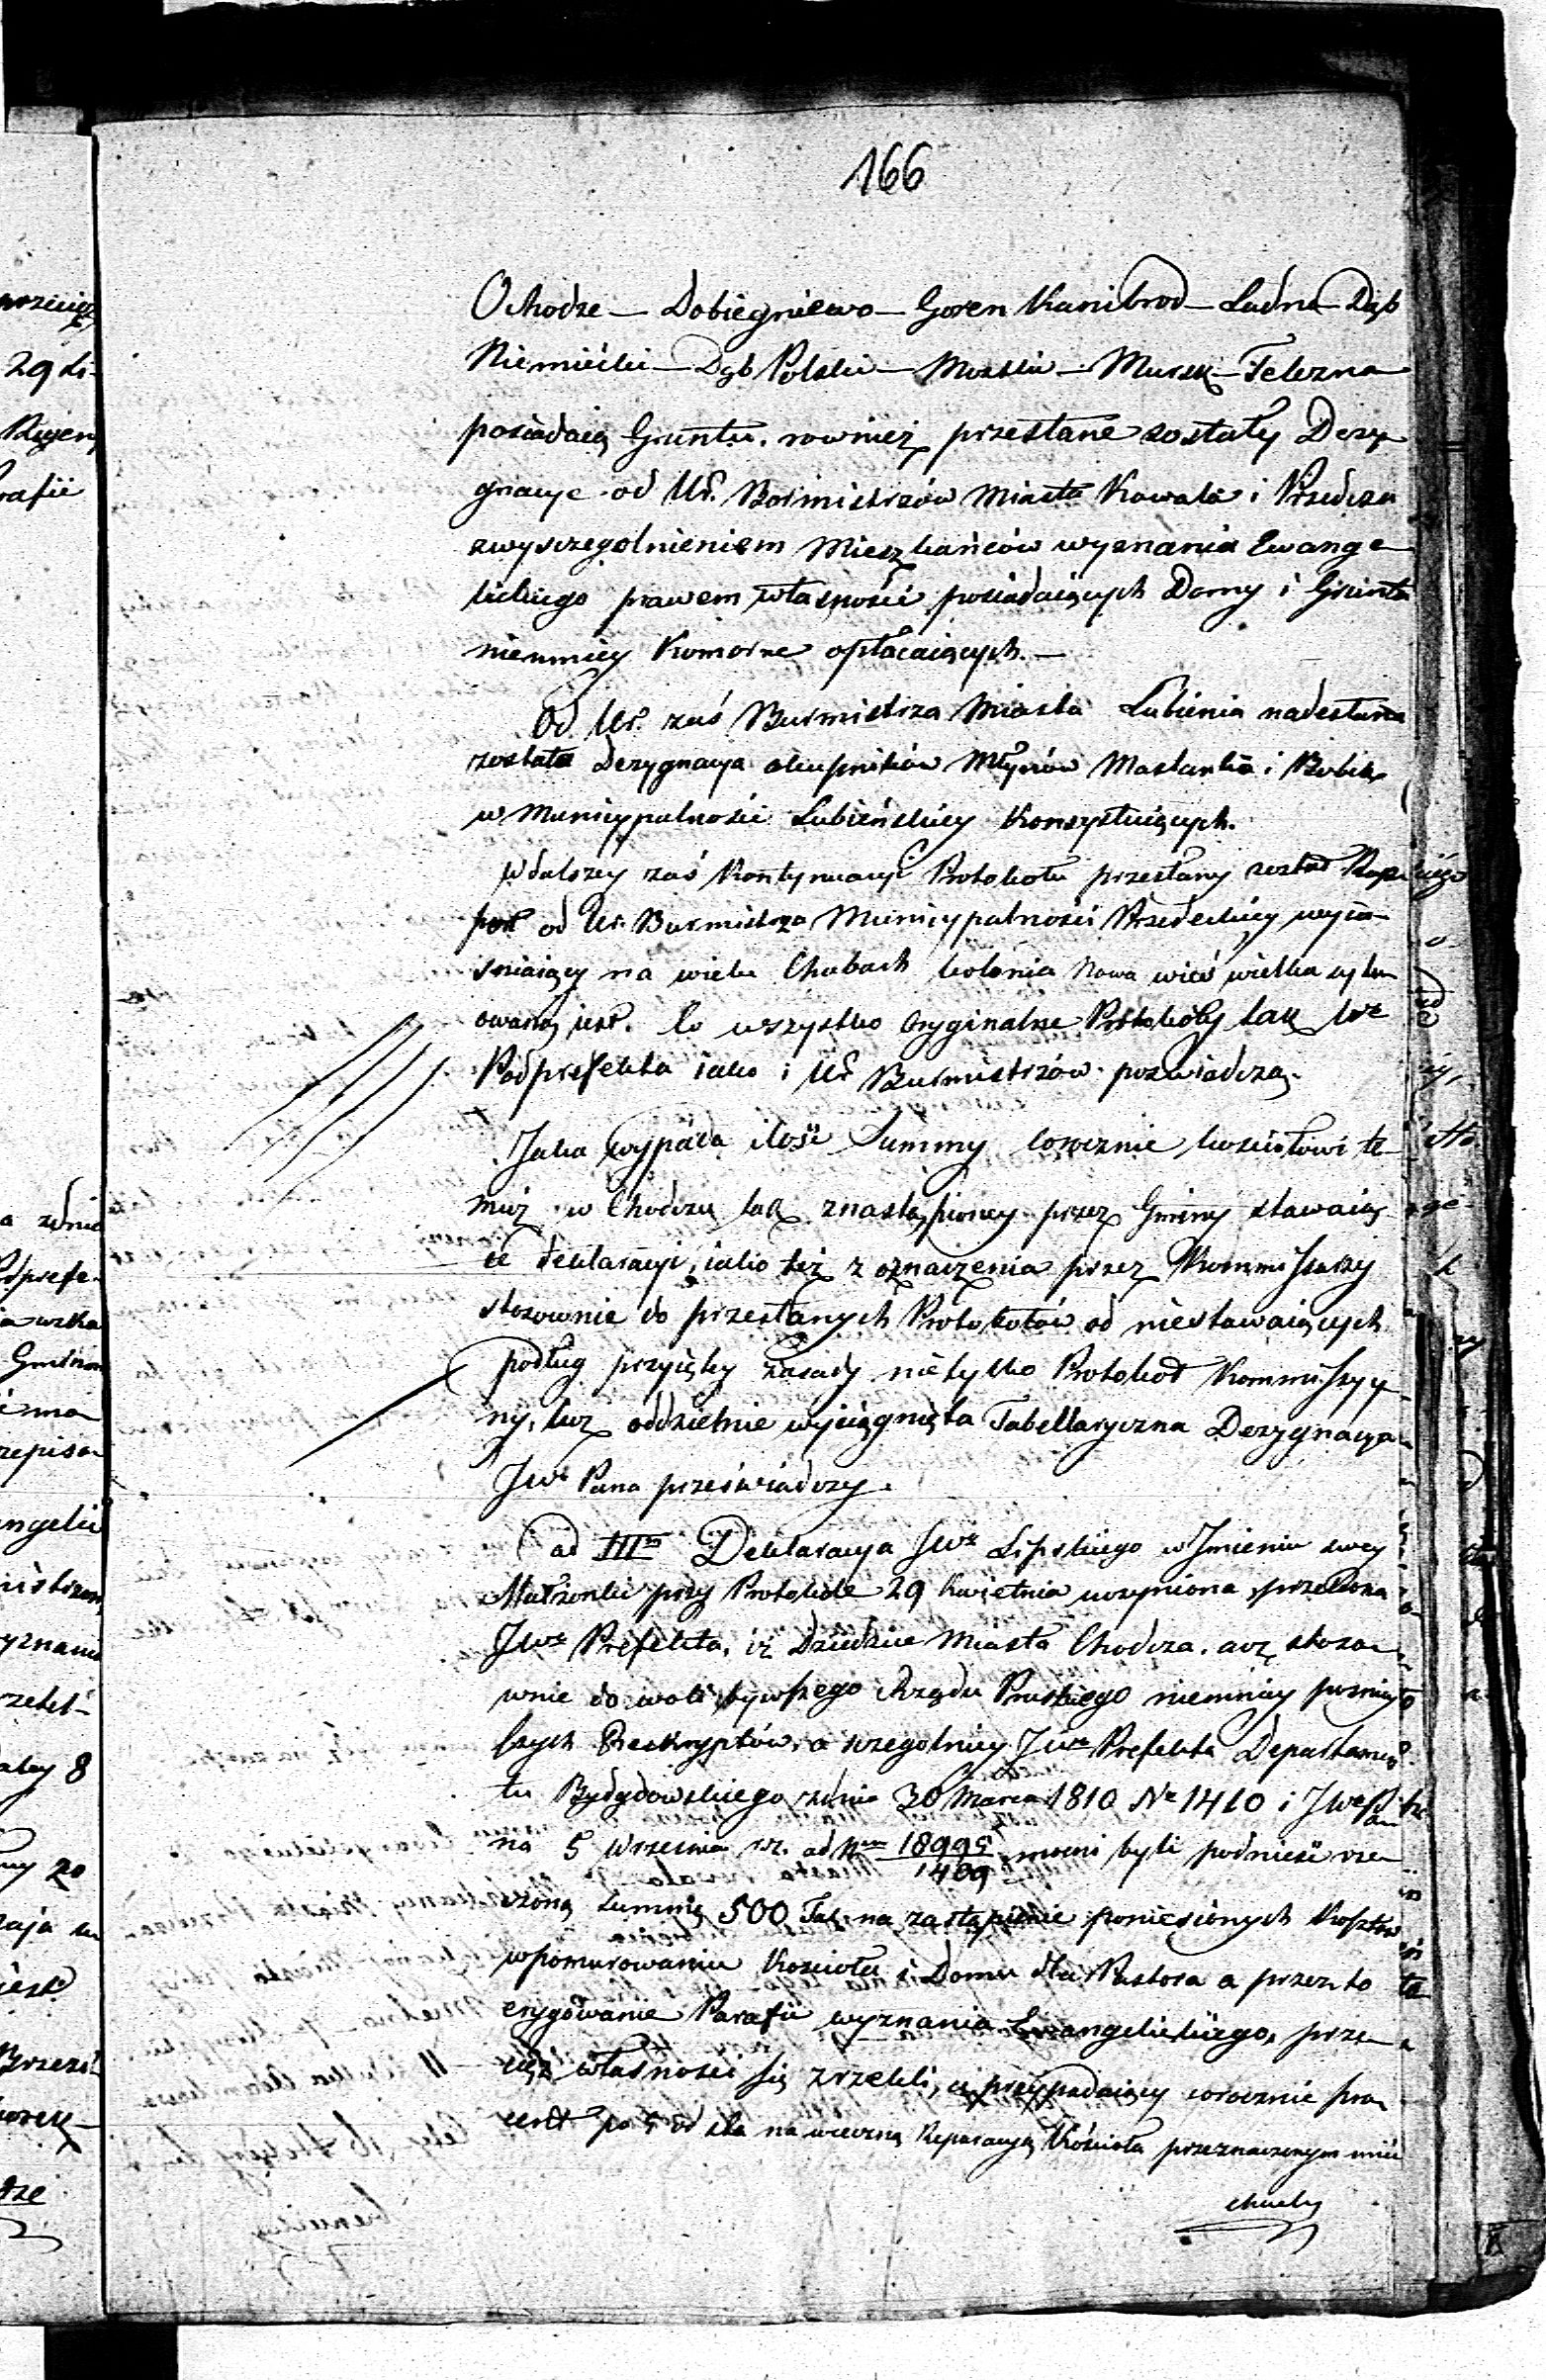 166
Ochodze — Dobiegniewo — Goren Kanibrod — Ladne — Dąb
Niemiecki — Dąb Polski — — Mursk — Telezna
posiadaią Grunta. rownież przesłane zostały Dezy-
gnacye od Ur. Bormistrzów Miasta Kowala i Przedcza
zwyszczegolnieniem Mieszkańców wyznania Ewange-
lickiego prawem własności posiadaiących Domy i Grunta
niemniey Komorne opłacaiących. —
Od Ur. zaś Burmistrza Miasta Lubienia nadesłana
została Dezygnacya okupników Młynów Maslanka i
w Municypalności Lubieńskiey Konsystuiących.
w dalszey zaś Kontynuacyi Protokołu przesłany został Rap-
port od Ur. Burmistrza Municypalności Przedeckiey wyia-
sniaiący na wielu Chubach kolonia Nowa wieś wielka sytu-
owaną iest. Co wszystko Oryginalne Protokóły tak Wo
Podprefekta iako i Ur Burmistrzów poświadczą.
Jaka wypada ilość Summy corocznie kościołowi te-
muż w Chodczu tak znastąpioney przez Gminy stawaią-
ce deklaracyi, iako też z oznaczenia przez Kommissarzy
stosownie do przesłanych Protokołów od niestawaiących
podług przyiętey zasady nietylko Protokoł Kommissyy-
ny, lecz oddzielnie wyciągnięta Tabellaryczna Dezygnacya
JWo Pana przeświadczy.
ad IIIm Deklaracya JWo Lipskiego w Jmieniu swey
Małżonki przy Protokole 29 Kwietnia uczyniona przekona
JWo Prefekta, iż Dziedzice Miasta Chodcza. acz stoso-
wnie do woli bywszego Rządu Pruskiego niemniey
szych Reskryptów, a szczegolniey JWo Prefekta Departamen-
tu Bydgdowskiego zdnia 30 Marca 1810 No 1410 i JWo Pa-
na 5 Wrzesnia r.z. ad Num 18995/1409 mocni byli podnieść rze-
czoną Summę 500 Tal. na zastąpienie poniesionych Kosztów
wpomurowaniu Kościoła i Domu dla Pastora a przez to
erygowanie Parafii wyznania Ewangelickiego, prze-
cięż własności się zrzekli, a przypadaiący corocznie pro-
cent po 5 od sta na wieczną Reparacyą Kościoła przeznaczonym mieć
chcieli